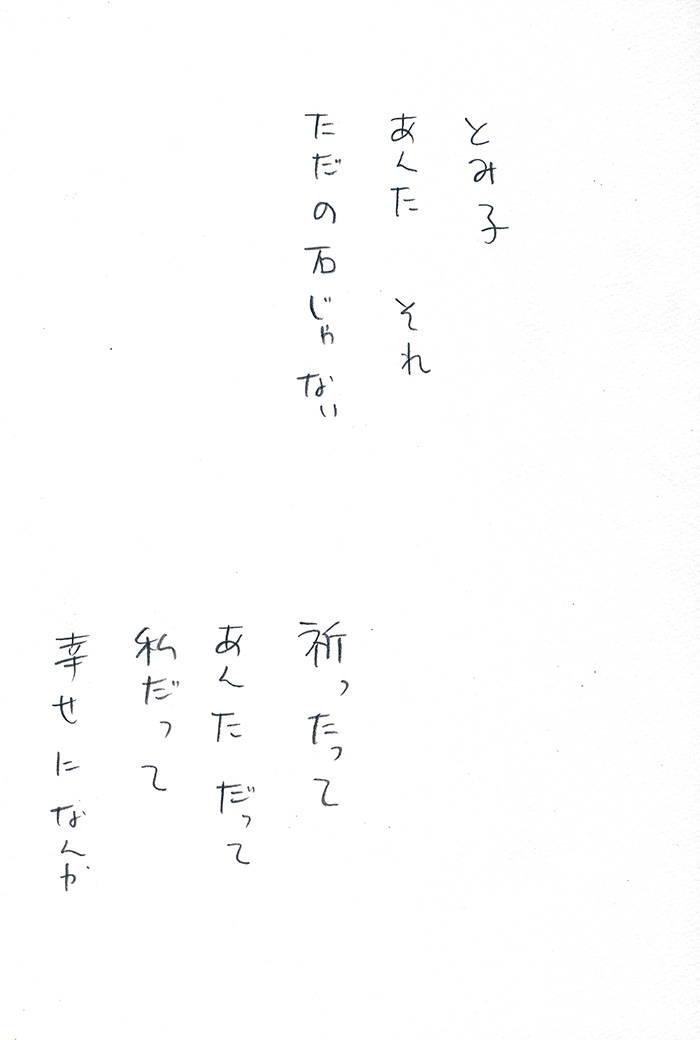 とみ子
あんた　それ
ただの石じゃない
祈ったって
あんただって
私だって
幸せになんか